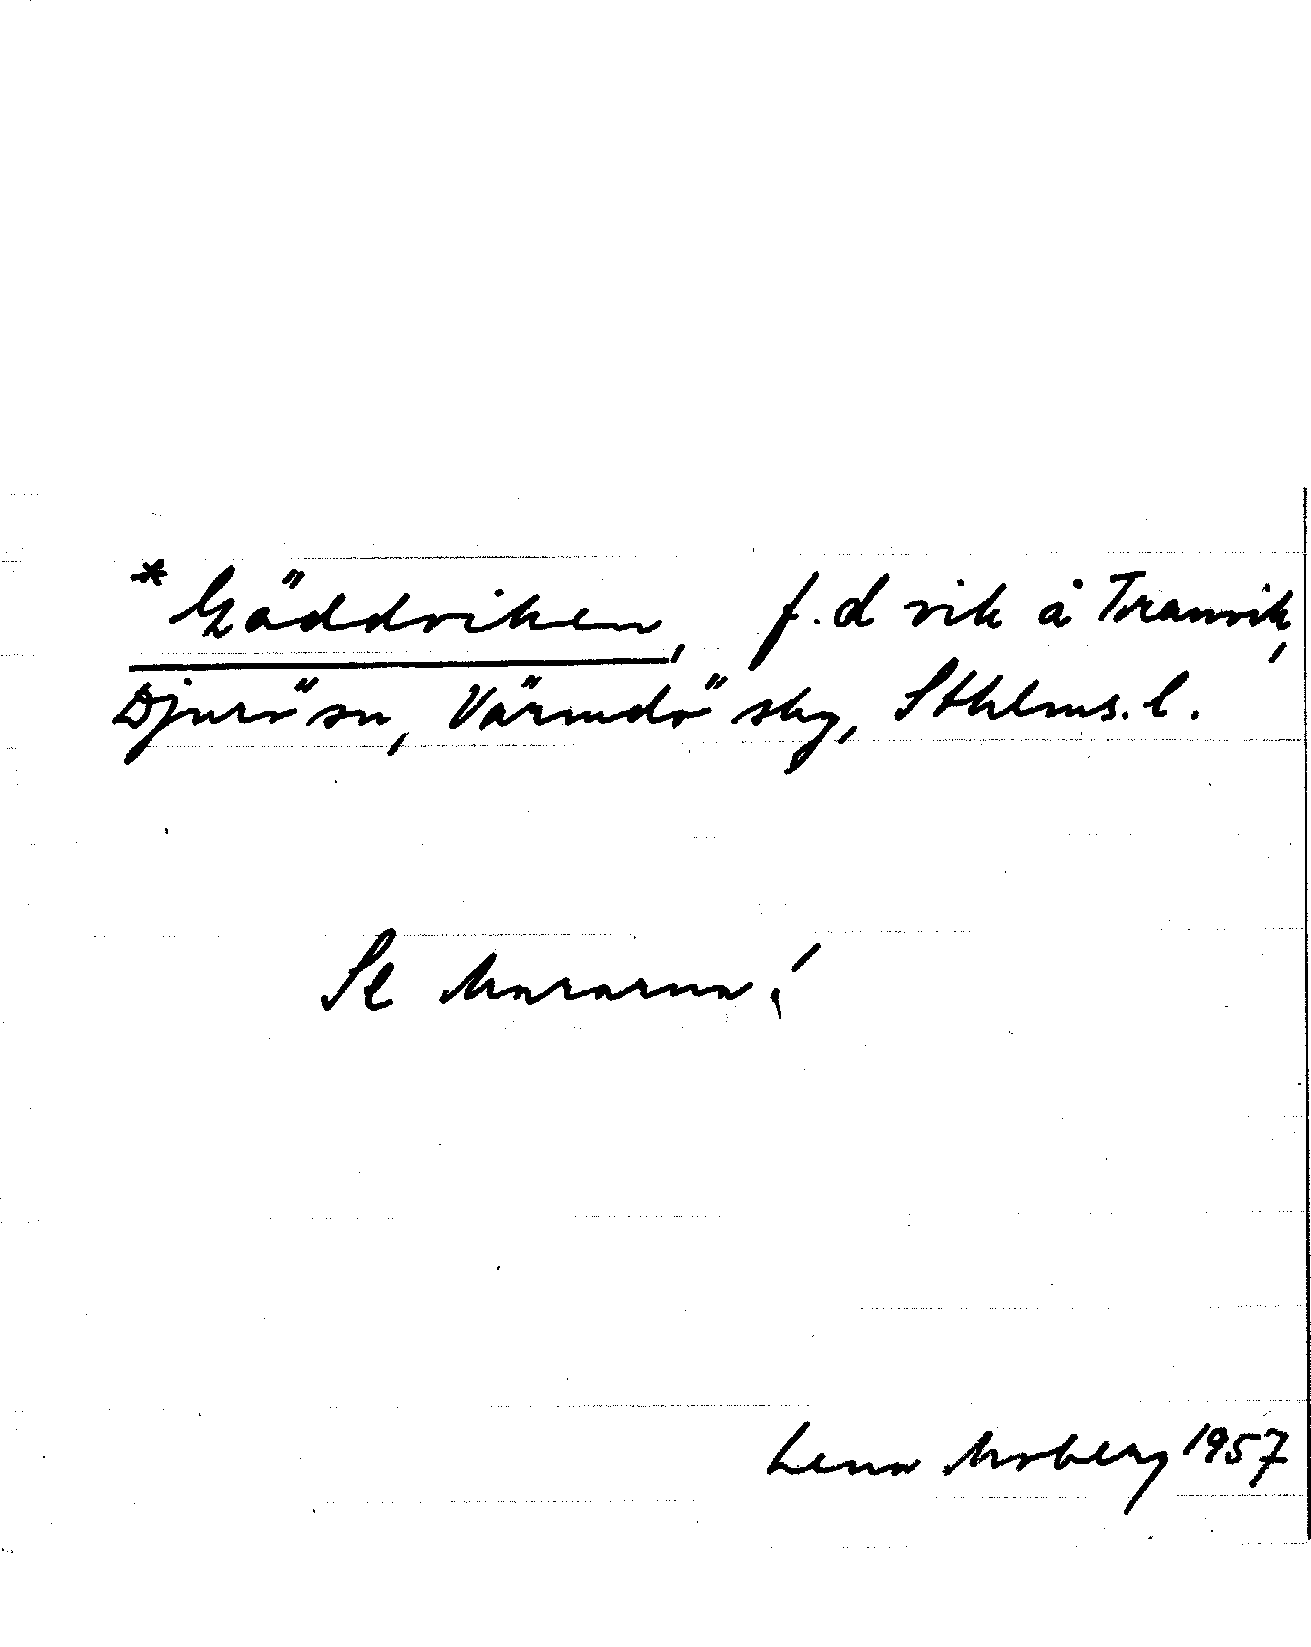 * Gäddviken, f.d vik å Tranvik,
Djurö sn, Värmdö skg, Sthlms. l.
Se Mararna!
Lena Moberg 1957